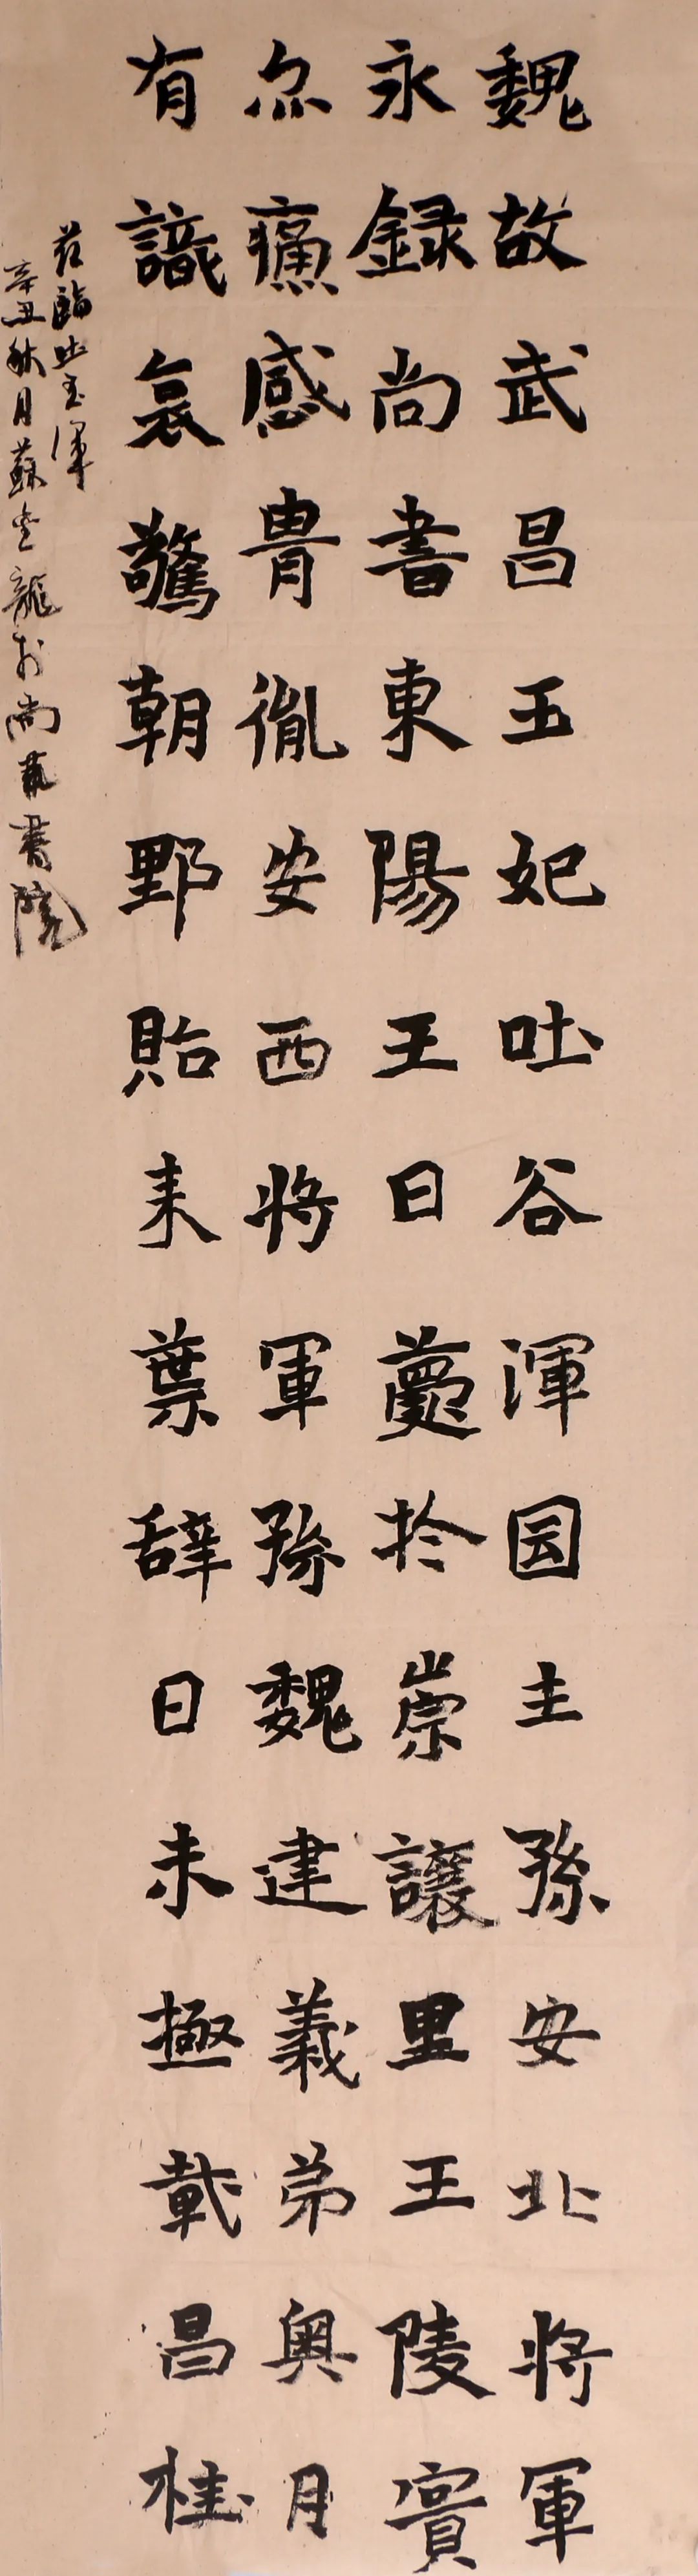 魏故武昌王妃吐谷渾国主孫安北將軍
永録尚書東陽王日薨於崇讓里王陵賓
尒痛感胄胤安西将軍孫魏建義弟輿月
有識哀驚朝野貽来葉辭曰未極載昌桂
苏臨吐谷渾
辛丑秋月蘇金龍於尚藝書院